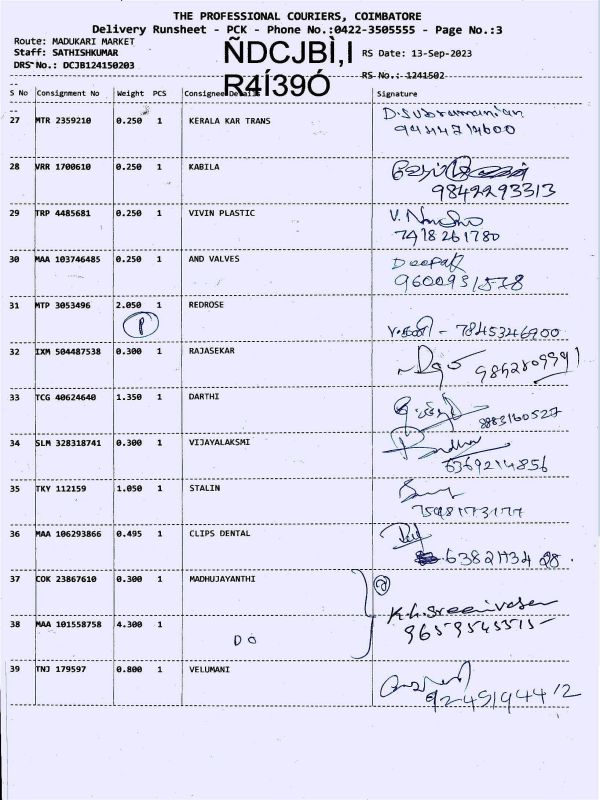 THE PROFESSIONAL COURIERS, COIMBATORE
Delivery Runsheet - PCK - Phone No.:0422-3505555 - Page No.:3
Route: MADUKARI MARKET
Staff: SATHISHKUMAR RS Date: 13-Sep-2023
DRS No.: DCJB124150203
ÑDCJBÌ,I
R4Í39Ó
RS No.: 1241502
S No Consignment No Weight PCS Consignee Details Signature
27 MTR 2359210 0.250 1 KERALA KAR TRANS D.Subramanian
28 VRR 1700610 0.250 1 KABILA
9842293313
29 TRP 4485681 0.250 1 VIVIN PLASTIC
7418261780
30 MAA 103746485 0.250 1 AND VALVES Deepak
31 MTP 3053496 2.050 1 REDROSE
P
7845346900
32 IXM 504487538 0.300 1 RAJASEKAR
33 TCG 40624640 1.350 1 DARTHI
8883160527
34 SLM 328318741 0.300 1 VIJAYALAKSMI
6369214856
35 TKY 112159 1.050 1 STALIN
36 MAA 106293866 0.495 1 CLIPS DENTAL
37 COK 23867610 0.300 1 MADHUJAYANTHI
K.h.Sreenivasan
38 MAA 101558758 4.300 1
DO
39 TNJ 179597 0.800 1 VELUMANI